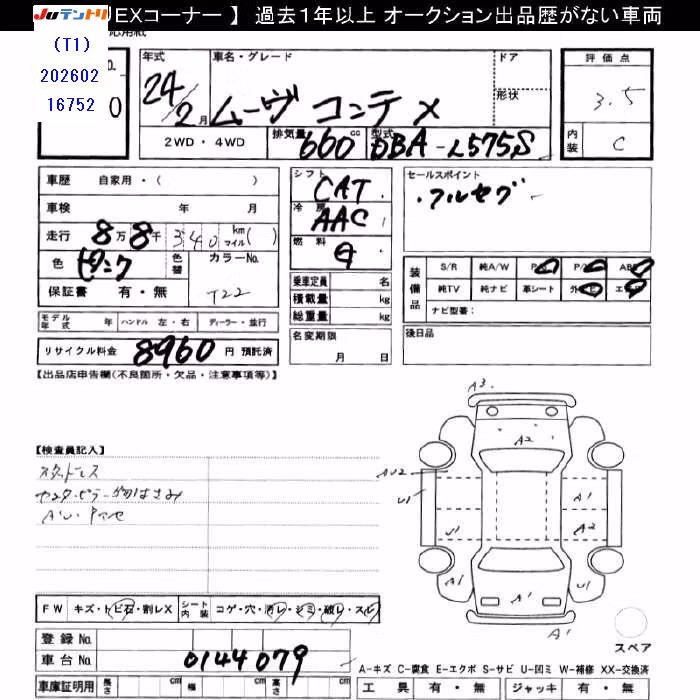 JUテントリ EXコーナー 】 過去１年以上 オークション出品歴がない車両
(T1)
202602
16752
年式 車名・グレード ドア 評価点
24/2月 ムーヴ コンテ メ 形状 3.5
2WD・4WD 排気量 660cc 型式 DBA-L575S 内装 C
車歴 自家用・( )
シフト CAT
セールスポイント
・フルセグ
車検 年 月
冷房 AAC
走行 8万8千340 km マイル( )
燃料 G
色 ピンク 色替 カラーNo.
T22
保証書 有・無
乗車定員 名
積載量 kg
総重量 kg
装備品 S/R 純A/W P/S P/W ABS
純TV 純ナビ 革シート 外ナビ エアB
ナビ型番：
モデル年式 年 ハンドル 左・右 ディーラー・並行
名変期限 月 日
後日品
リサイクル料金 8960 円 預託済
【出品店申告欄(不良箇所・欠品・注意事項等)】
【検査員記入】
スタッドレス
A3
A2
AU2
U1
A1
A2
U1
A1
U1
A1
A1
スペア
FW キズ・トビ石・割レX シート内装 コゲ・穴・汚レ・シミ・破レ・スレ
登録No.
車台No. 0144079
A-キズ C-腐食 E-エクボ S-サビ U-凹ミ W-補修 XX-交換済
車庫証明用 長さ cm 幅 cm 高さ cm
工具 有・無 ジャッキ 有・無